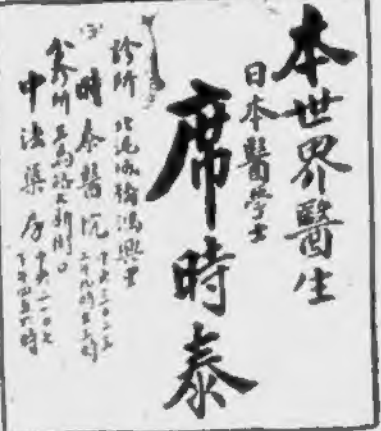 本世界醫生
日本醫学士
席時泰
診所 北泥城橋鴻興里
時泰醫院
分診所
中法藥房